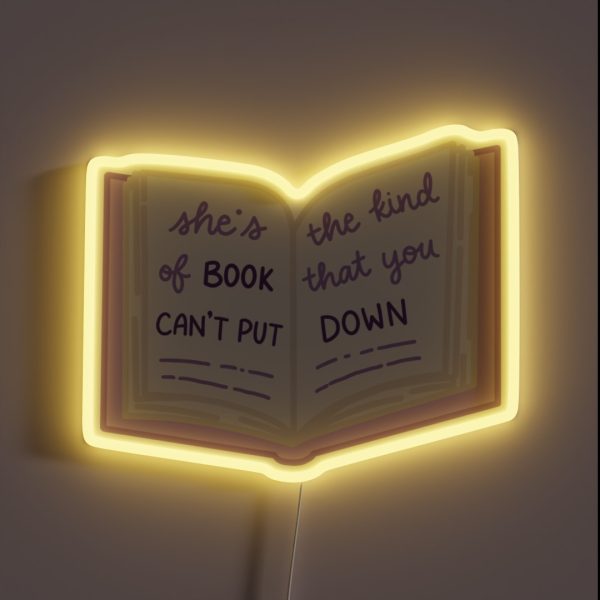 she's the kind
of BOOK that you
CAN'T PUT DOWN